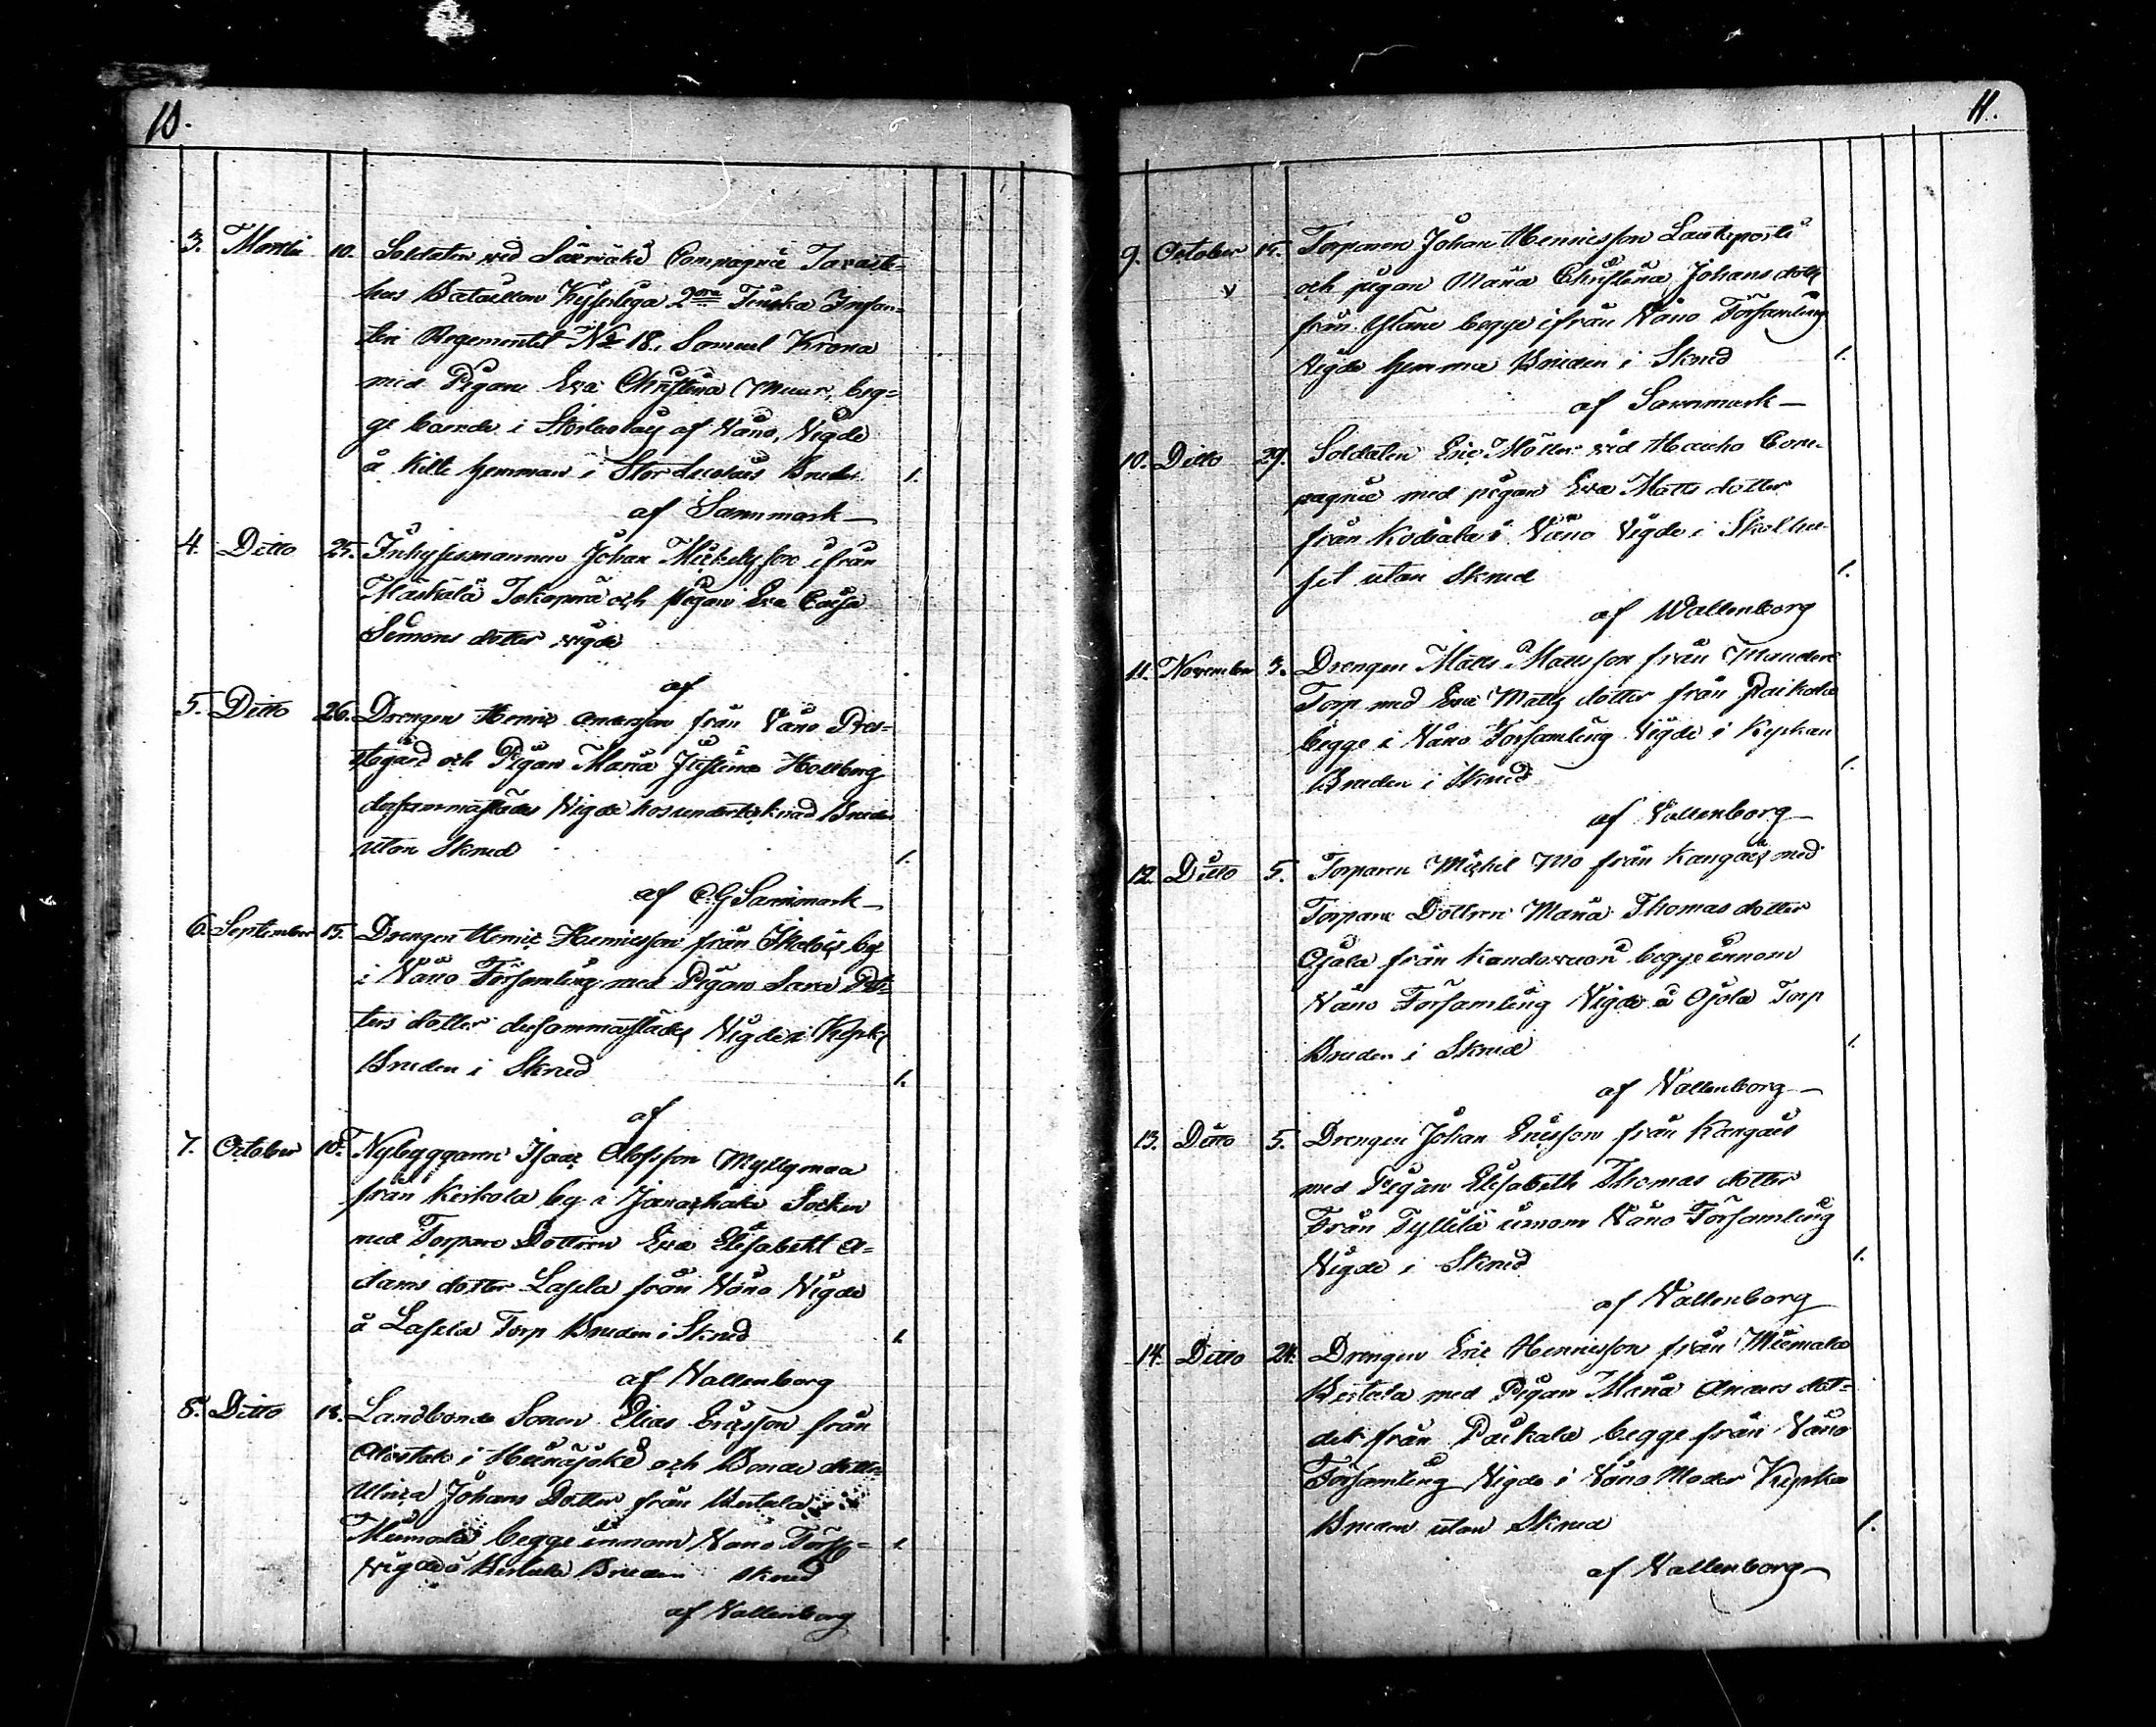 10.
3. Martii 10. Soldaten vid Säriäki Compagnie Tavaste-
hus Bataillon Kejserliga 2dra Finska Infan-
teri Regementet No 18, Samuel Krona
med Pigan Eva Christina Muur, beg-
ge boende i af Wånå, Vigde
å Kilti hemman i Bruden 1.
af Sanmark
4. Ditto 25. Inhysesmannen Johan Mickelsson ifrån
och pigan Eva Caisa
Simons dotter vigde
af
5. Ditto 26. Drengen Henric Andersson från Wånå Pres-
tegård och Pigan Maria Justina Hollberg
dersammastädes Vigde hos undertecknad Bruden
utan Skrud 1.
af C G Sanmark
6. September 15. Drengen Henric Henricsson från by
i Wånå Församling med Pigan Sara Pet-
ters dotter dersammastädes Vigde i Kyrk
Bruden i Skrud 1.
af
7. October 10. Nybyggaren Isaac Olofsson Myllymaa
från Keikola by i Janackala Socken
med Torpare Dottren Eva Elisabeht A-
dams dotter Lasela från Wånå Vigde
å Lasela Torp Bruden i Skrud 1.
af Vallenborg
8. Ditto 18. Landbonde Sonen Elias Ericsson från
Alistalo i och Bonde dotter
Ulrica Johans Dotter från Bertula
Miemala begge innom Wånå Förs-
Vigde å Bertula Bruden Skrud 1.
af Vallenborg
11.
9. October 15. Torparen Johan Henricsson
och pigan Maria Christina Johans dotter
från begge ifrån Wånå Församling
Vigde hemma Bruden i Skrud 1.
af Sanmark
10. Ditto 29. Soldaten Eric Möller vid Hauho Com-
pagnie med pigan Eva Matts dotter
från Kodiala i Wånå Vigde i Skolhu-
set utan Skrud 1.
af Wallenborg
11. November 3. Drengen Matts Mattsson från
Torp med Eva Matts dotter från Paikala
begge i Wånå Församling Vigde i Kyrkan
Bruden i Skrud 1.
af Vallenborg
12. Ditto 5. Torparen Michel Mo från Kangais med
Torpare Dottren Maria Thomas dotter
Ojala från Kandovuori begge innom
Wånå Församling Vigde å Ojala Torp
Bruden i Skrud 1.
af Vallenborg
13. Ditto 5. Drengen Johan Ericsson från Kangais
med Pigan Elisabeth Thomas dotter
från Tyllilä innom Wånå Församling
Vigde i Skrud 1.
af Vallenborg
14. Ditto 24. Drengen Eric Henricsson från Miemala
Bertula med Pigan Maria Anders dot-
der från Paikala begge från Wånå
Församling Vigde i Wånå Moder Kyrka
Bruden utan Skrud 1.
af Vallenborg